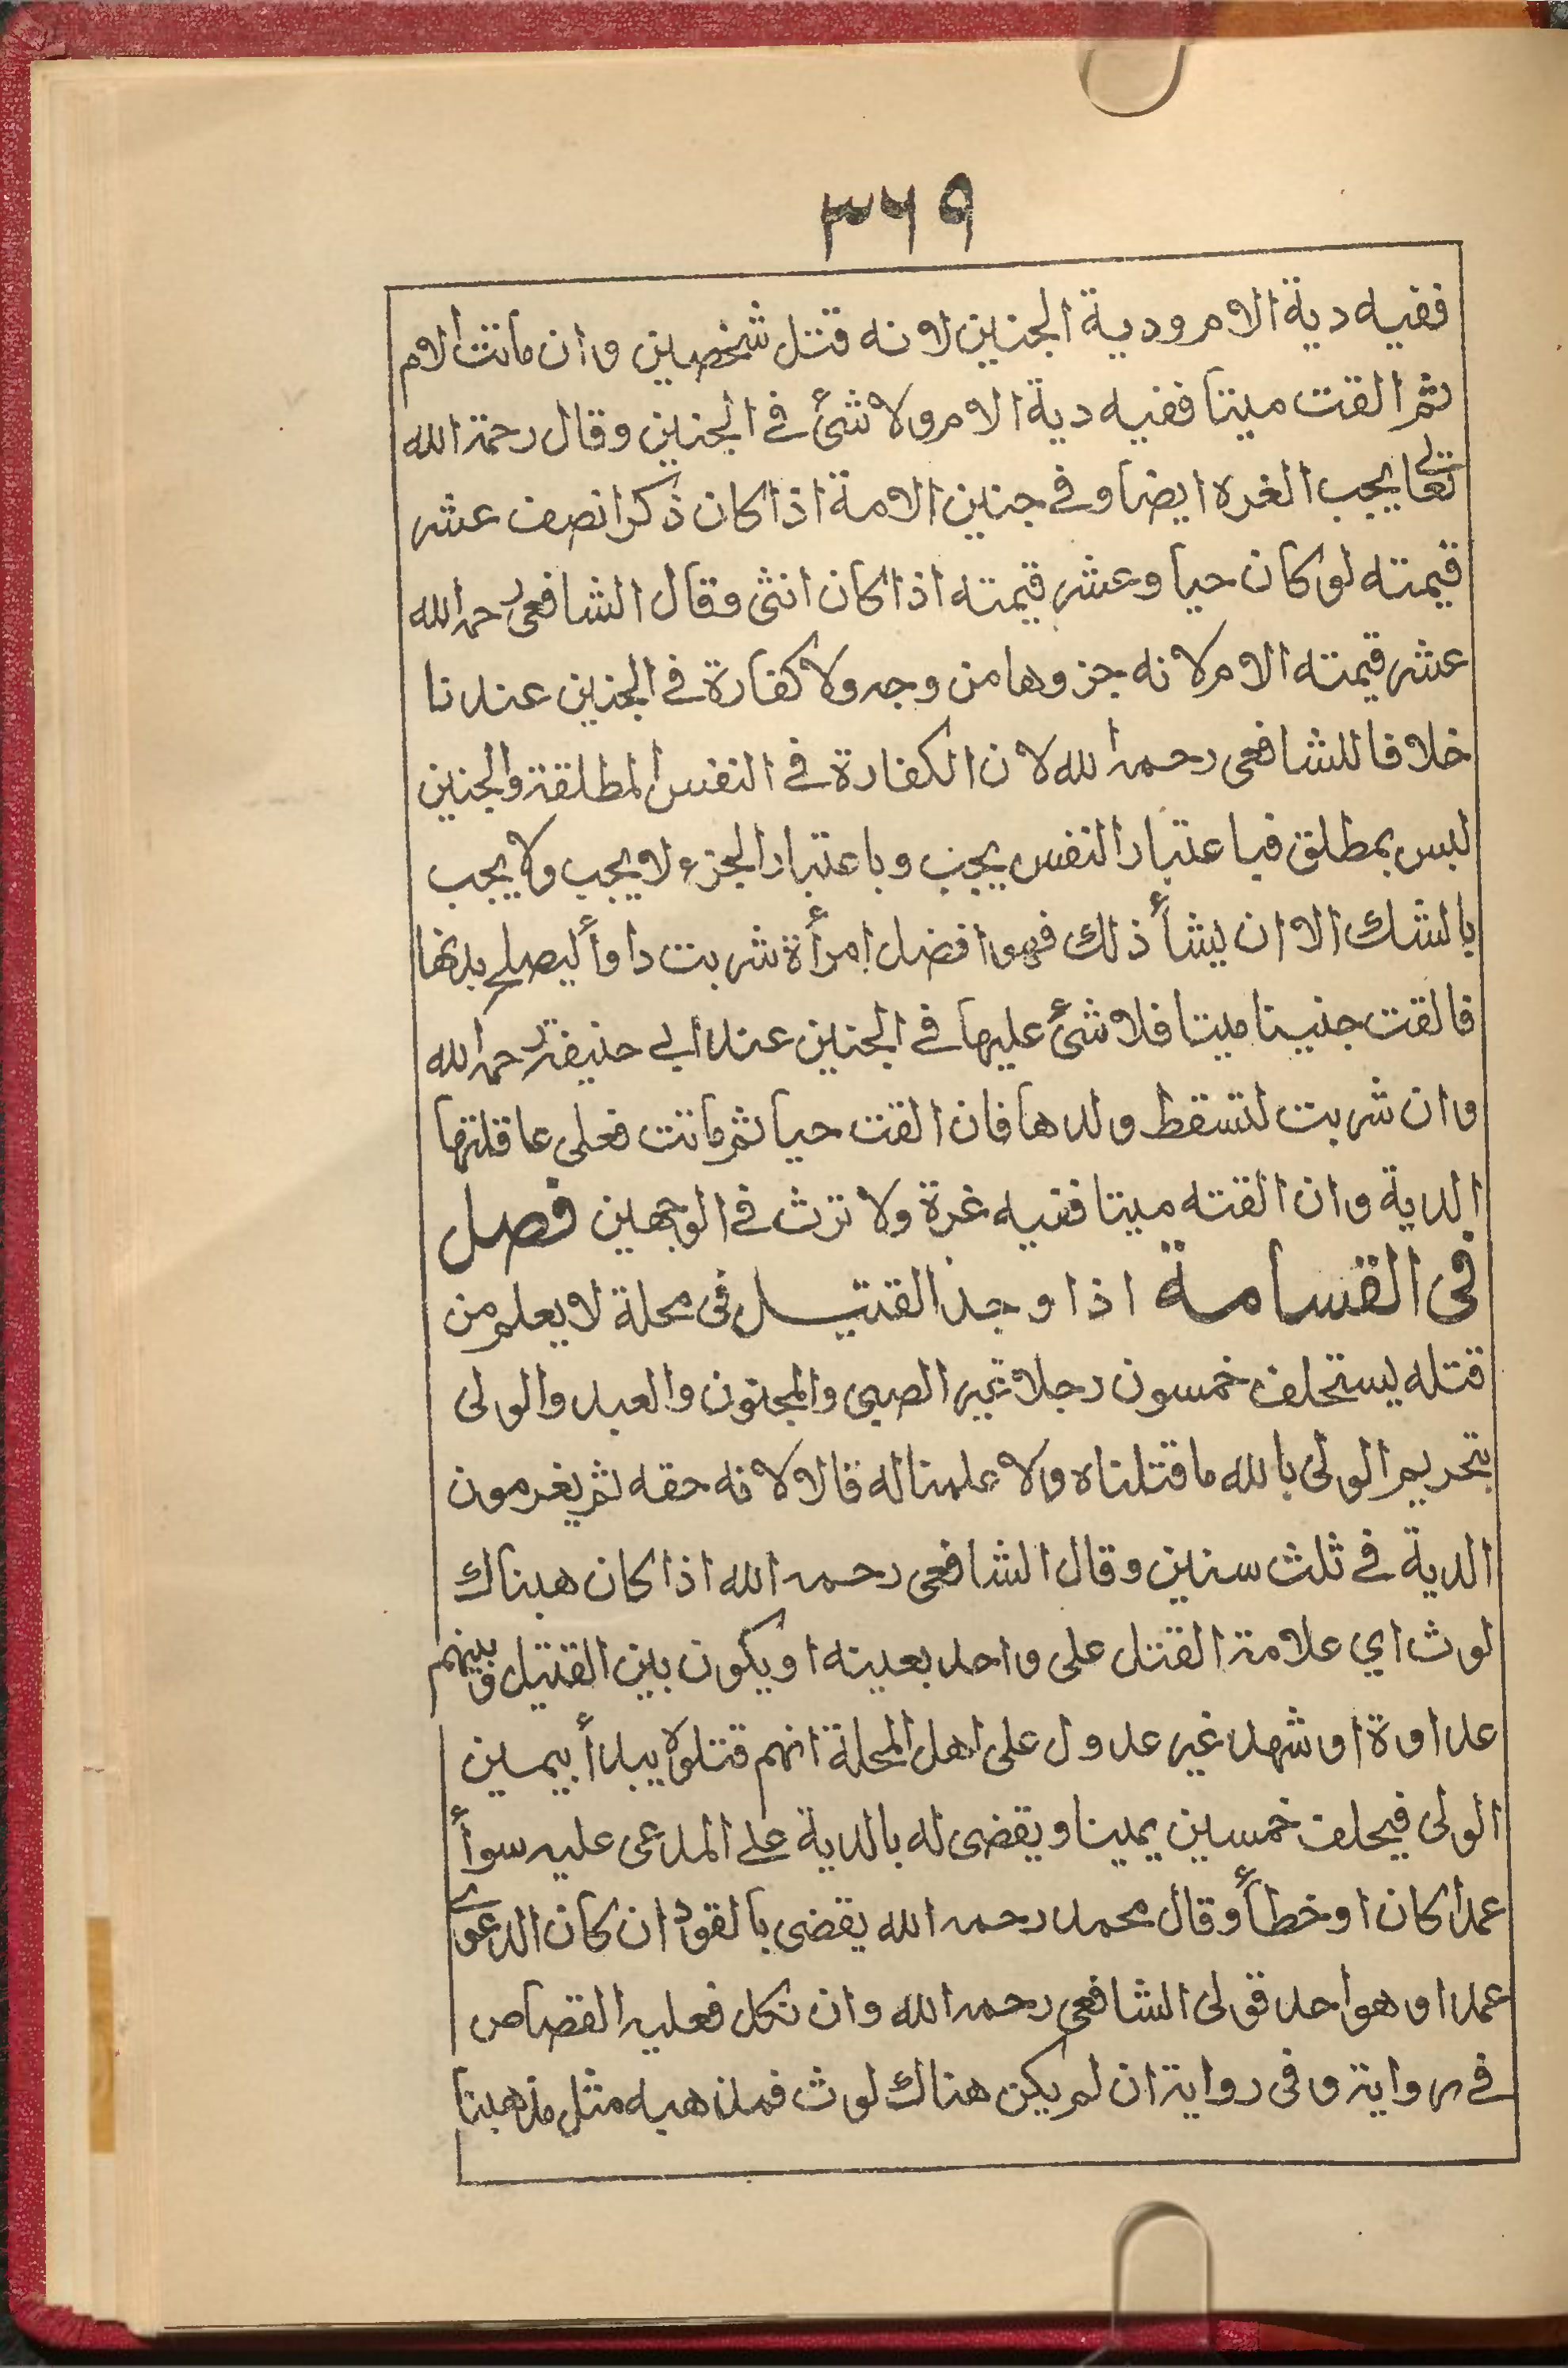 ٣٦٩
ففيه دية الام ودية الجنين لانه قتل شخصين وان ماتت الام
ثم القت ميتا ففيه دية الام ولا شئ في الجنين وقال رحمة الله
تعالى يجب الغره ايضا وفي جنين الامة اذا كان ذكرا نصف عشر
قيمته لو كان حيا وعشر قيمته اذا كان انثى وقال الشافعى رحمه الله
عشر قيمته الام لانه جزوها من وجه ولا كفارة في الجنين عندنا
خلافا للشافعى رحمه الله لان الكفارة في النفس المطلقة والجنين
ليس بمطلق فباعتبار النفس يجب وباعتبار الجزء لا يجب ولا يجب
بالشك الا ان يشأ ذلك فهو افضل امرأة شربت داوأ ليصلح بدنها
فالقت جنينا ميتا فلا شئ عليها في الجنين عند ابي حنيفة رحمه الله
وان شربت لتسقط ولدها فان القت حيا ثم ماتت فعلى عاقلتها
الدية وان القته ميتا ففيه غرة ولا ترث في الوجهين فصل
فى القسامة اذا وجد القتيل فى محلة لا يعلم من
قتله يستحلف خمسون رجلا غير الصبى والمجنون والعبد والولى
بتحريم الولى بالله ما قتلناه ولا علمنا له قالا لانه حقه ثم يغرمون
الدية في ثلث سنين وقال الشافعى رحمه الله اذا كان هناك
لوث اي علامة القتل على واحد بعينه او يكون بين القتيل وبينهم
عداوة او شهد غير عدول على اهل المحلة انهم قتلوه يبدأ بيمين
الولى فيحلف خمسين يمينا ويقضى له بالدية على المدعى عليه سوأ
عمدا كان او خطأ وقال محمد رحمه الله يقضى بالقود ان كان الدعوى
عمدا وهو احد قولى الشافعى رحمه الله وان نكل فعليه القصاص
في رواية وفى رواية ان لم يكن هناك لوث فمذهبه مثل مذهبنا